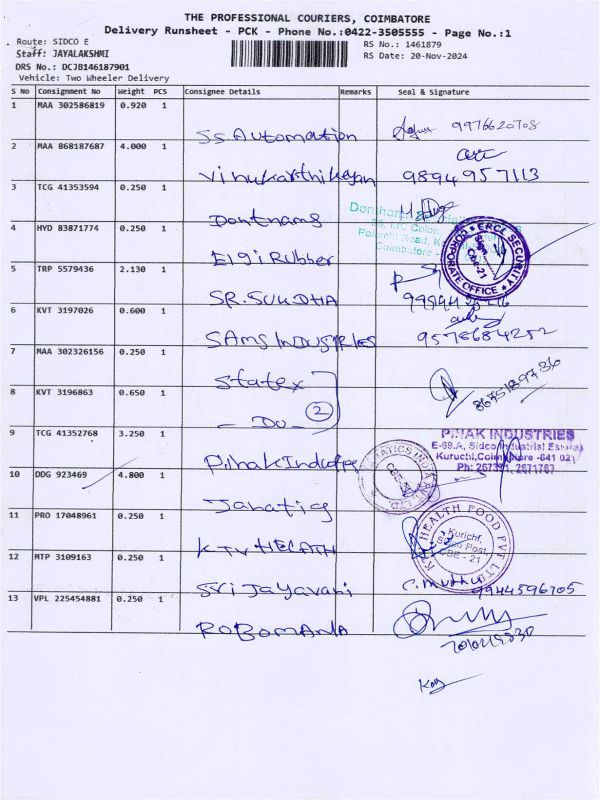 THE PROFESSIONAL COURIERS, COIMBATORE
Delivery Runsheet - PCK - Phone No.:0422-3505555 - Page No.:1
Route: SIDCO E
Staff: JAYALAKSHMI
DRS No.: DCJB146187901
Vehicle: Two Wheeler Delivery
RS No.: 1461879
RS Date: 20-Nov-2024
S No Consignment No Weight PCS Consignee Details Remarks Seal & Signature
1 MAA 302586819 0.920 1
S.S.Automation 9976620708
2 MAA 868187687 4.000 1
Vinukarthikeyan 9894957113
3 TCG 41353594 0.250 1
Dontnams
4 HYD 83871774 0.250 1
Elgi Rubber
ERCE SECURITY
CORPORATE OFFICE
CBE-21
5 TRP 5579436 2.130 1
SR.SUKDHA
6 KVT 3197026 0.600 1
SAMS INDUSTRIES 9578684252
7 MAA 302326156 0.250 1
Statex
8675189786
8 KVT 3196863 0.650 1
- Do - 2
9 TCG 41352768 3.250 1
PINAK INDUSTRIES
E-69.A, Sidco Industrial Estate,
Kuruchi, Coimbatore -641 021
Ph: 267391, 2671763
Pinak Industries
10 DDG 923469 4.800 1
Janatics
11 PRO 17048961 0.250 1
KTV HEALTH
HEALTH FOOD PVT LTD
Kurichi,
Sidco Post,
CBE - 21
12 MTP 3109163 0.250 1
Sri Jayavani
C. Muthu
9944596705
13 VPL 225454881 0.250 1
ROBOMANIA